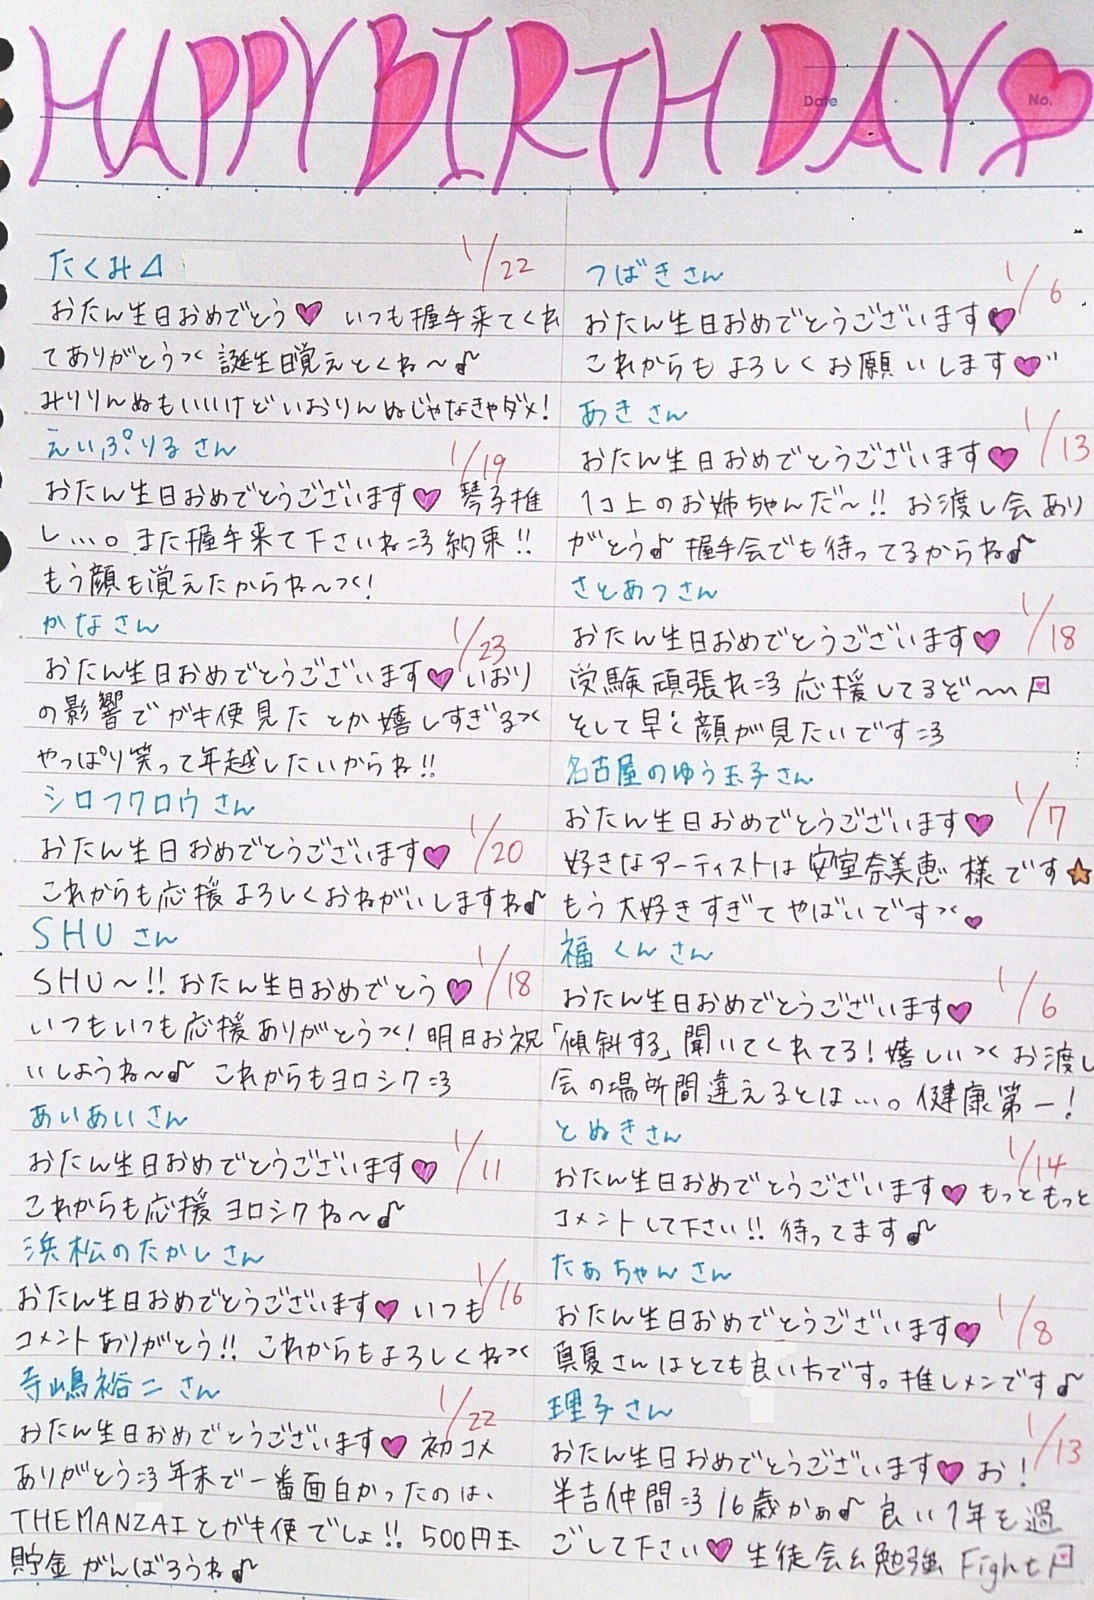 HAPPY BIRTHDAY
Date
No.
たくみ⊿
1/22
おたん生日おめでとう♥ いつも握手来てくれ
てありがとう>< 誕生日覚えとくね〜♪
みりりんぬもいいけどいおりんぬじゃなきゃダメ!
えいぷりるさん
1/19
おたん生日おめでとうございます♥ 琴子推
し…。また握手来て下さいね=3 約束!!
もう顔も覚えたからね〜><!
かなさん
1/23
おたん生日おめでとうございます♥ いおり
の影響でガキ使見たとか嬉しすぎる><
やっぱり笑って年越したいからね!!
シロフクロウさん
1/20
おたん生日おめでとうございます♥
これからも応援よろしくおねがいしますね♪
SHUさん
1/18
SHU〜!! おたん生日おめでとう♥
いつもいつも応援ありがとう><! 明日お祝
いしようね〜♪ これからもヨロシク=3
あいあいさん
1/11
おたん生日おめでとうございます♥
これからも応援ヨロシクね〜♪
浜松のたかしさん
1/16
おたん生日おめでとうございます♥ いつも
コメントありがとう!! これからもよろしくね><
寺嶋裕二さん
1/22
おたん生日おめでとうございます♥ 初コメ
ありがとう=3 年末で一番面白かったのは、
THEMANZAIとガキ使でしょ!! 500円玉
貯金がんばろうね♪
つばきさん
1/6
おたん生日おめでとうございます♥
これからもよろしくお願いします♥
あきさん
1/13
おたん生日おめでとうございます♥
1コ上のお姉ちゃんだ〜!! お渡し会あり
がとう♪ 握手会でも待ってるからね♪
さとあつさん
1/18
おたん生日おめでとうございます♥
受験頑張れ=3 応援してるぞ〜〜
そして早く顔が見たいです=3
名古屋のゆう玉子さん
1/7
おたん生日おめでとうございます♥
好きなアーティストは安室奈美恵様です☆
もう大好きすぎてやばいです><♥
福くんさん
1/6
おたん生日おめでとうございます♥
「傾斜する」聞いてくれてる! 嬉しい>< お渡し
会の場所間違えるとは…。健康第一!
とぬきさん
1/14
おたん生日おめでとうございます♥ もっともっと
コメントして下さい!! 待ってます♪
たぁちゃんさん
1/8
おたん生日おめでとうございます♥
真夏さんはとても良い方です。推しメンです♪
理子さん
1/13
おたん生日おめでとうございます♥ お!
半吉仲間=3 16歳かぁ♪ 良い1年を過
ごして下さい♥ 生徒会&勉強 Fight